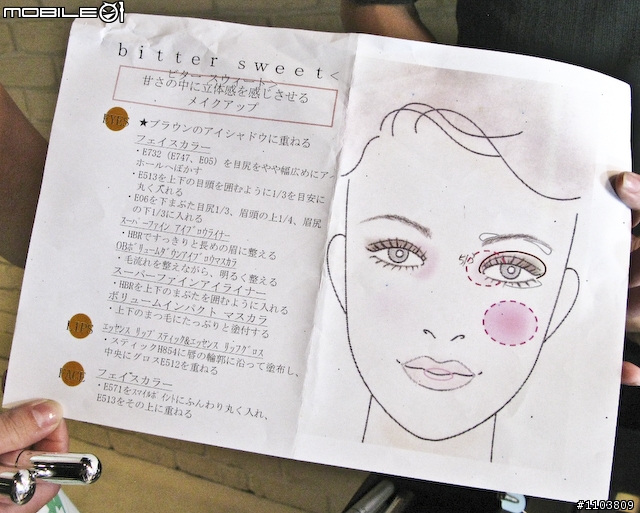 MOBILE01
bitter sweet<
ビター スウィート
甘さの中に立体感を感じさせる
メイクアップ
EYES
★ブラウンのアイシャドウに重ねる
フェイスカラー
・E732（E747、E05）を目尻をやや幅広めにアイ
ホールへぼかす
・E513を上下の目頭を囲むように1/3を目安に
丸く入れる
・E06を下まぶた目尻1/3、眉頭の上1/4、眉尻
の下1/3に入れる
スーパーファイン アイブロウライナー
・HBRですっきりと長めの眉に整える
OBボリュームダウンアイブロウマスカラ
・毛流れを整えながら、明るく整える
スーパーファインアイライナー
・HBRを上下のまぶたを囲むように入れる
ボリュームインパクト マスカラ
・上下のまつ毛にたっぷりと塗付する
LIPS
エッセンス リップスティック&エッセンス リップグロス
・スティックH854に唇の輪郭に沿って塗布し、
中央にグロスE512を重ねる
FACE
フェイスカラー
・E571をスマイルポイントにふんわり丸く入れ、
E513をその上に重ねる
#1103809